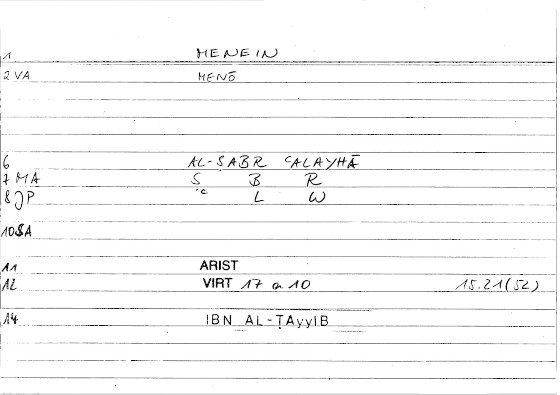 1 MENEIN
2 VA MENŌ
6 AL-SABR ʿALAYHĀ
7 MA S B R
8 JP ʿ L W
10 SA
11 ARIST
12 VIRT 17 a 10 15.21(52)
14 IBN AL-ṬAyyIB